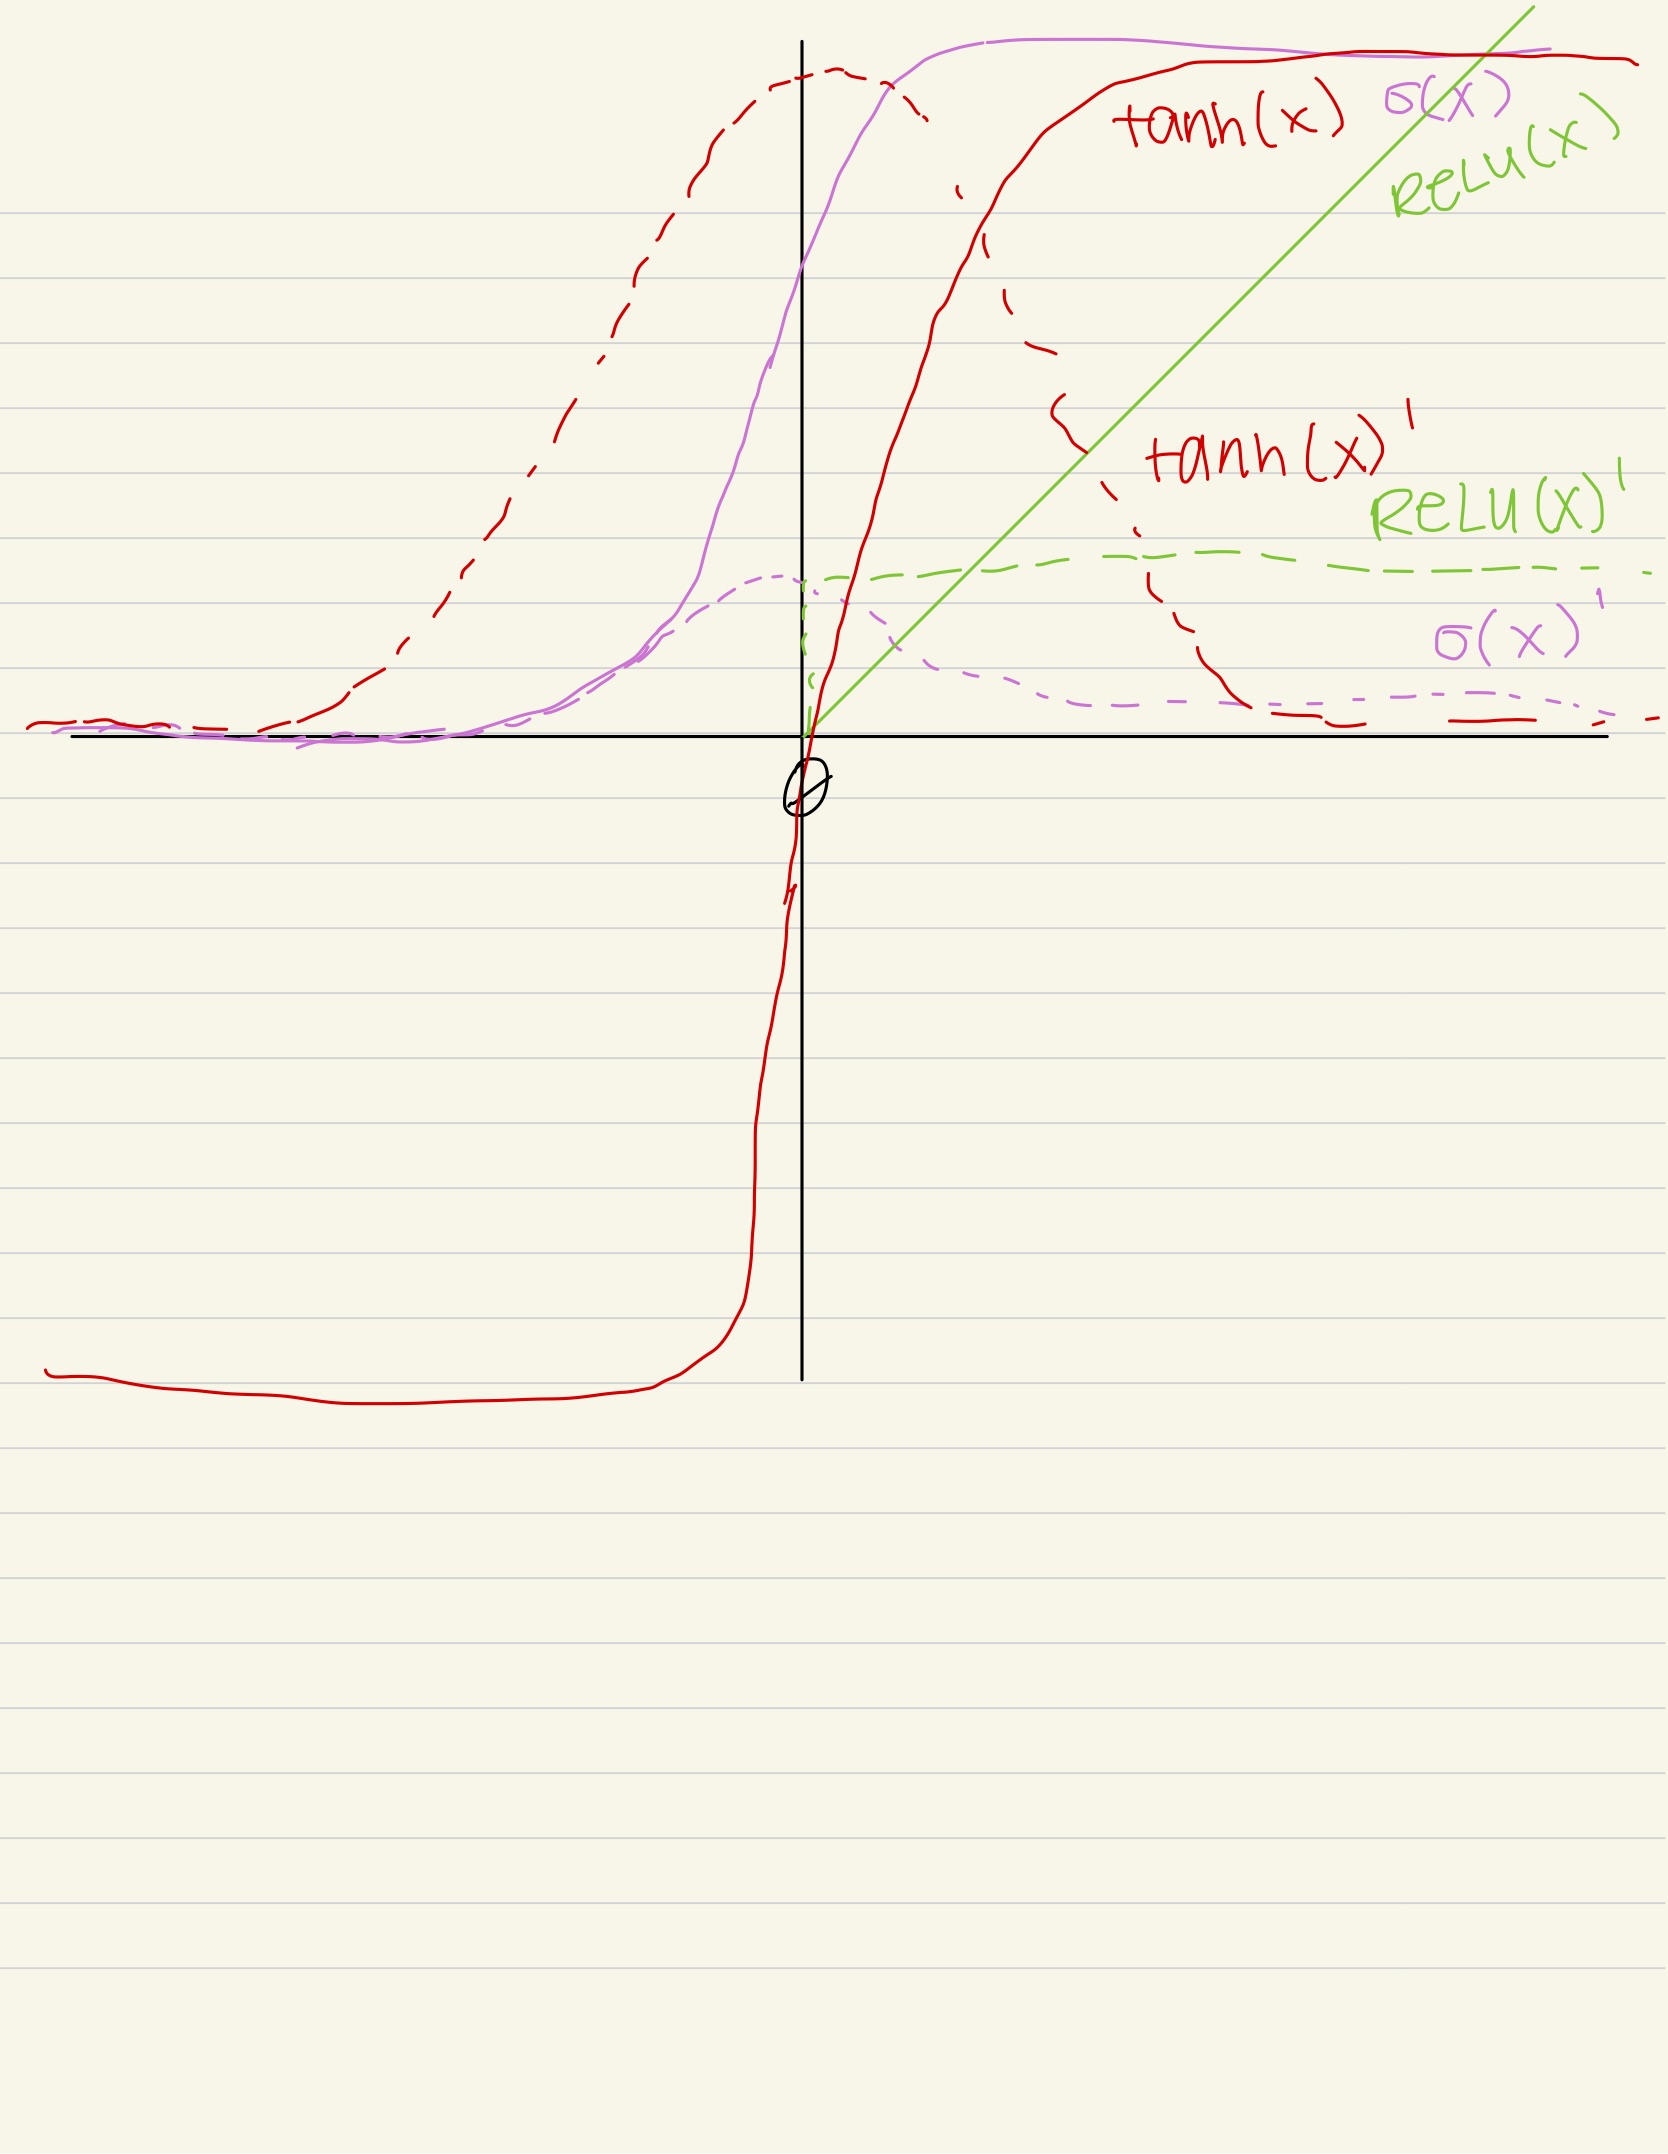 tanh(x)
σ(x)
RELU(x)
tanh(x)'
RELU(x)'
σ(x)'
0